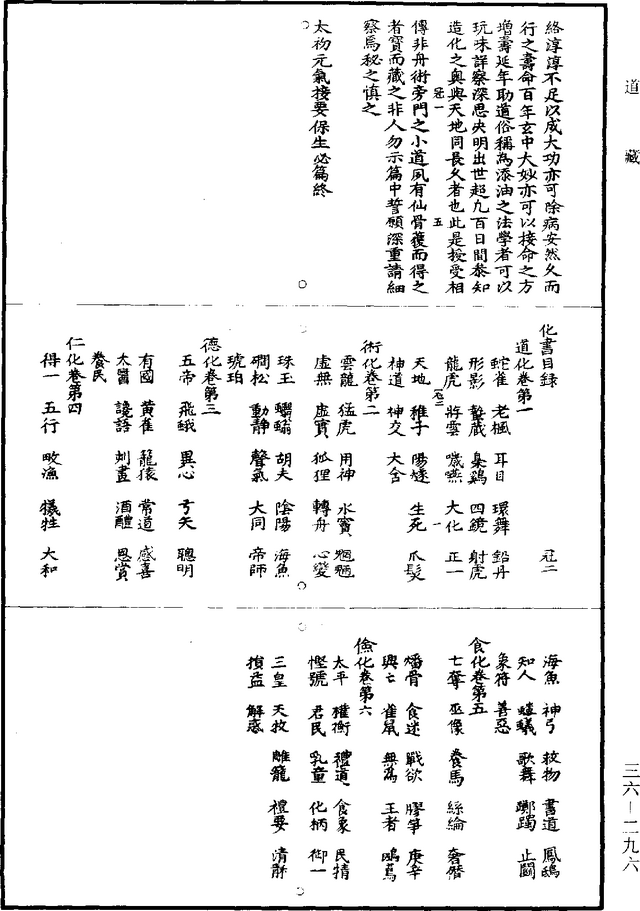 道藏
絡淳淳不足以成大功亦可除病安然久而
行之壽命百年玄中大妙亦可以接命之方
增壽延年助道俗稱為添油之法學者可以
玩味詳察深思決明出世超九百日間叅知
造化之奧與天地同長久者也此是授受相
傳非舟術旁門之小道夙有仙骨獲而得之
者寶而藏之非人勿示篇中誓願深重請細
察焉秘之慎之
太初元氣接要保生必篇終
化書目錄
道化卷第一
蛇雀 老楓 耳目 環舞 鉛丹
形影 蟄藏 梟鷄 四鏡 射虎
龍虎 游雲 噦嚥 大化 正一
天地 稚子 陽燧 生死 爪髮
神道 神交 大含
術化卷第二
雲龍 猛虎 用神 水竇 魍魎
虛無 虛實 狐狸 轉舟 心變
珠玉 蠮螉 胡夫 陰陽 海魚
磵松 動靜 聲氣 大同 帝師
琥珀
德化卷第三
五帝 飛蛾 異心 弓矢 聰明
有國 黃雀 籠猿 常道 感喜
太醫 讒語 刻畫 酒醴 恩賞
養民
仁化卷第四
得一 五行 畋漁 犧牲 太和
海魚 神弓 救物 書道 鳳鴟
知人 螻蟻 歌舞 躑躅 止鬭
象符 善惡
食化卷第五
七奪 巫像 養馬 絲綸 奢僭
燔骨 食迷 戰欲 膠竿 庚辛
興亡 雀鼠 無為 王者 鴟鳶
儉化卷第六
太平 權衡 禮道 食象 民情
慳號 君民 乳童 化柄 御一
三皇 天牧 雕籠 禮要 清靜
損益 解惑
三六—二九六